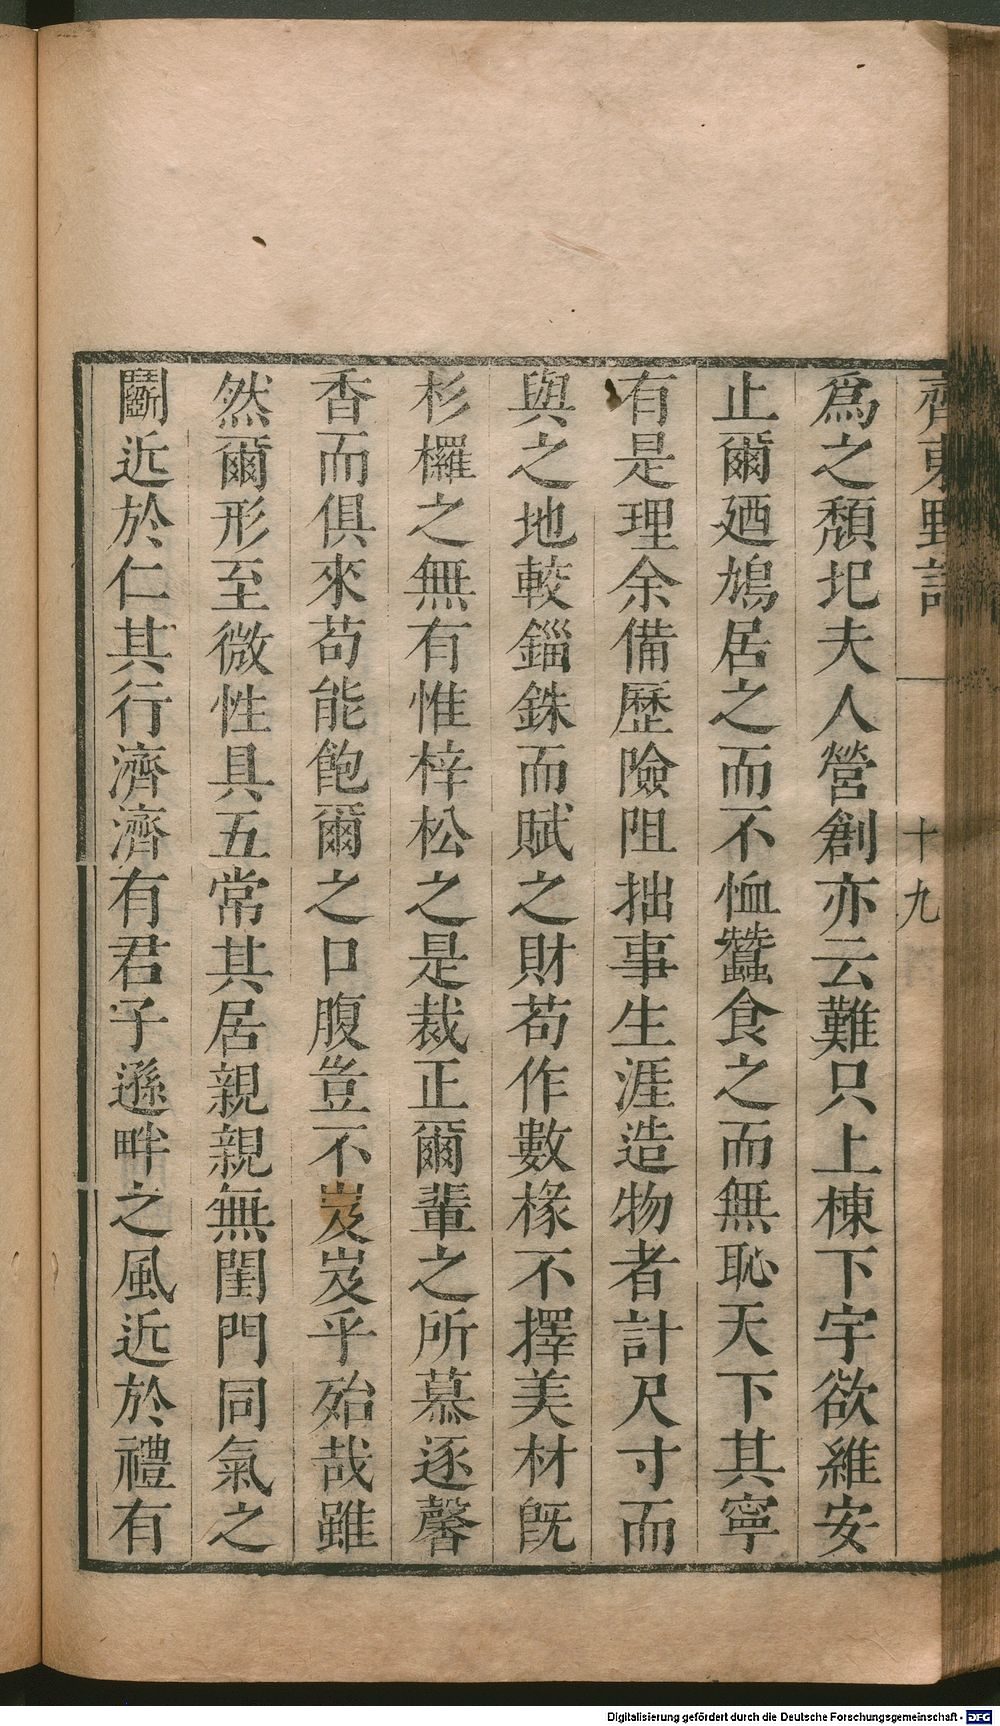 齊東野語 十九
爲之頽圯夫人營創亦云難只上棟下宇欲維安
止爾廼鳩居之而不恤蠶食之而無恥天下其寧
有是理余備歷險阻拙事生涯造物者計尺寸而
與之地較錙銖而賦之財苟作數椽不擇美材旣
杉欏之無有惟梓松之是裁正爾輩之所慕逐馨
香而俱來苟能飽爾之口腹豈不岌岌乎殆哉雖
然爾形至微性具五常其居親親無閨門同氣之
鬭近於仁其行濟濟有君子遜畔之風近於禮有
Digitalisierung gefördert durch die Deutsche Forschungsgemeinschaft - DFG